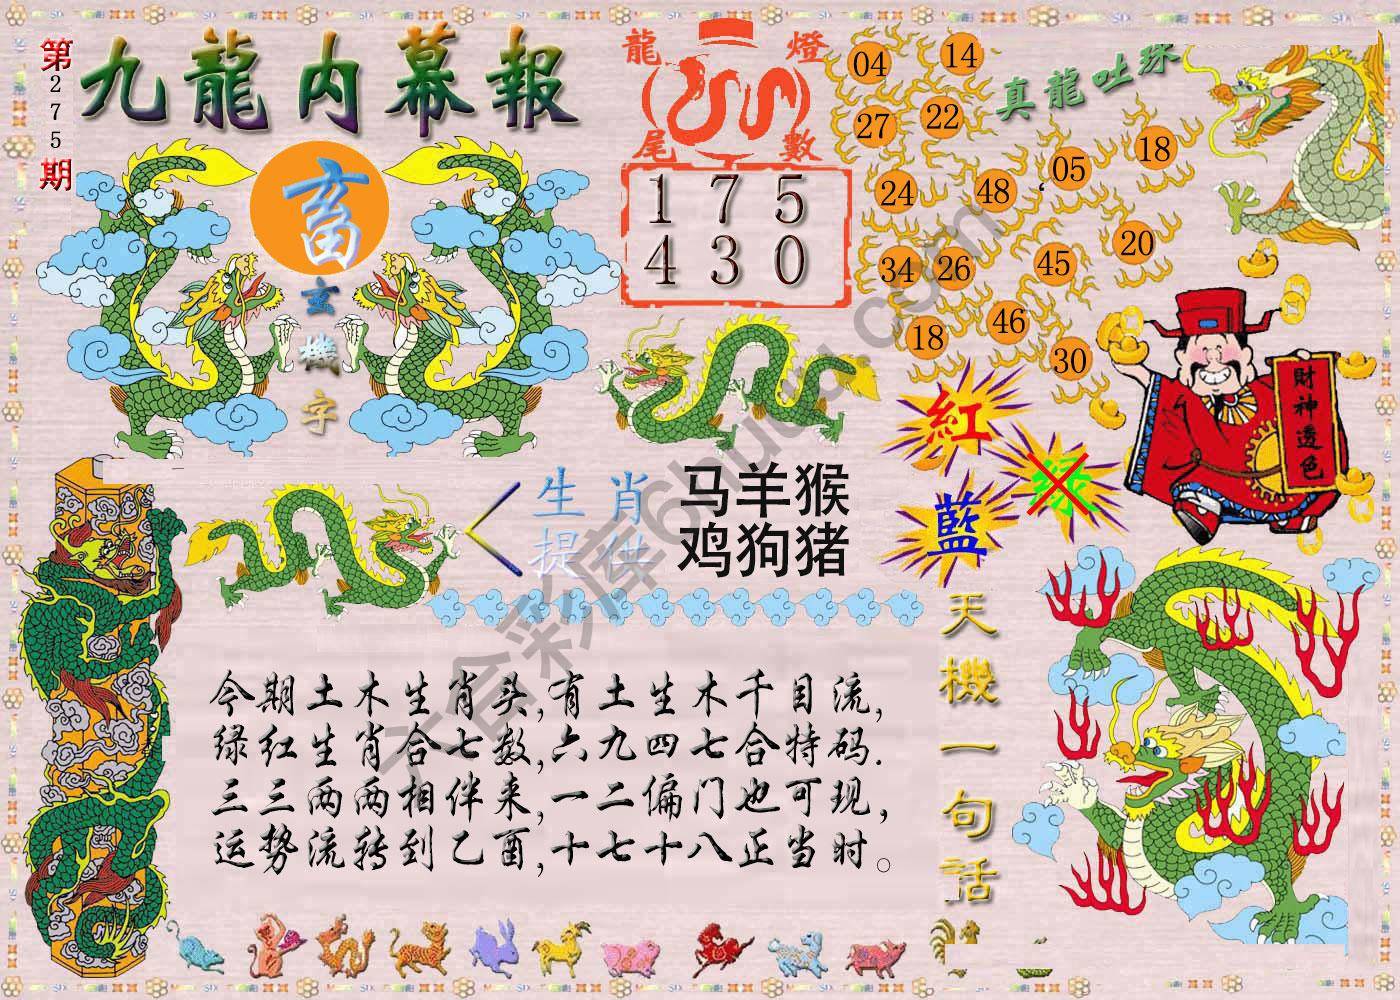 第275期
九龍内幕報
畜
玄機字
龍燈尾數
1 7 5
4 3 0
真龍吐珠
04 14
27 22
24 48 05 18
34 26 45 20
18 46 30
財神透色
紅
绿
藍
生肖提供
马羊猴
鸡狗猪
天機一句話
今期土木生肖头,有土生木千目流,
绿红生肖合七数,六九四七合特码.
三三两两相伴来,一二偏门也可现,
运势流转到乙酉,十七十八正当时。
六合彩库6huuu.com